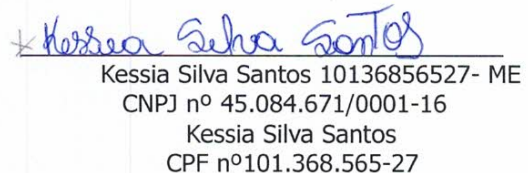 Kessia Silva Santos
Kessia Silva Santos 10136856527- ME
CNPJ nº 45.084.671/0001-16
Kessia Silva Santos
CPF nº101.368.565-27